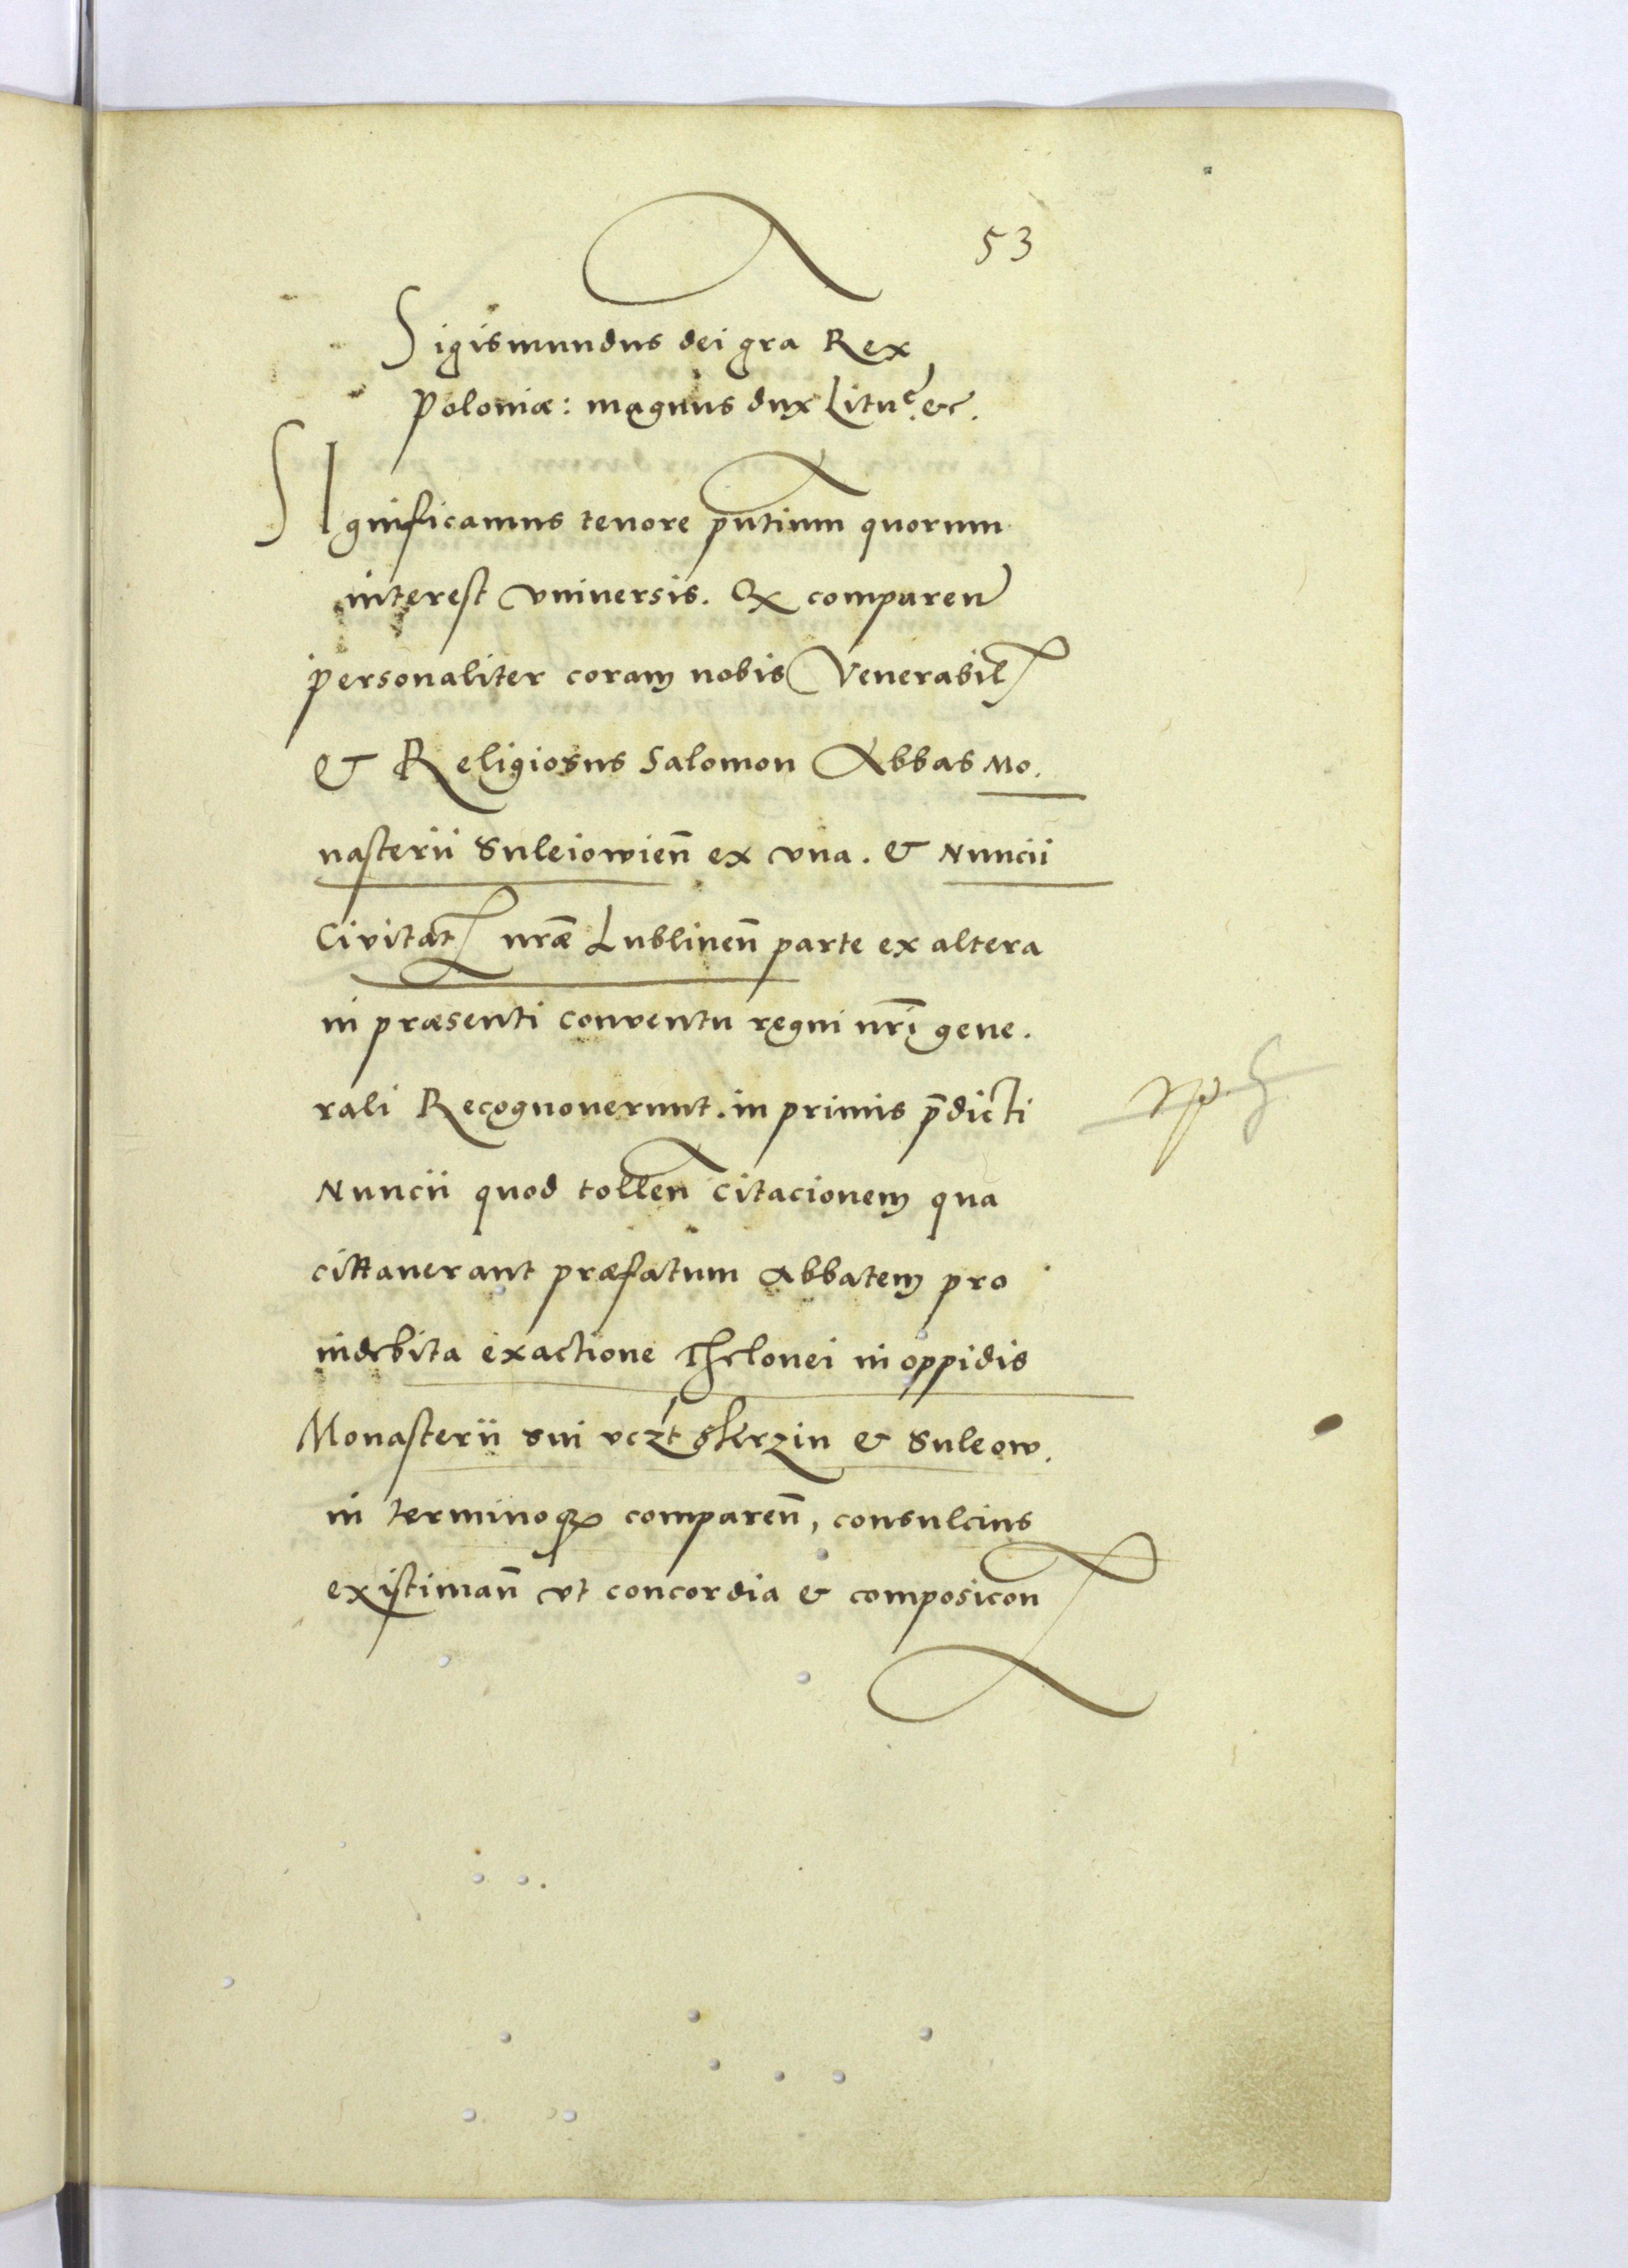 53
Sigismundus dei gra Rex
Poloniæ: magnus dux Lituc. &c.
SIgnificamus tenore pntium quorum
interest vniuersis. Qx comparen
personaliter coram nobis Venerabil
& Religiosus Salomon Abbas Mo.
nasterii Suleiowien̄ ex vna. & Nuncii
Civitat nr̄æ Lublinen̄ parte ex altera
in præsenti conventu regni nr̄i gene.
rali Recognouerunt. in primis p̄dicti
Nuncii quod tollen citacionem qua
cittauerant præfatum Abbatem pro
indebita exactione Thelonei in oppidis
Monasterii sui vczt Skrzin & Suleow.
in terminoqz comparen̄, consulcius
existiman̄ vt concordia & composicon